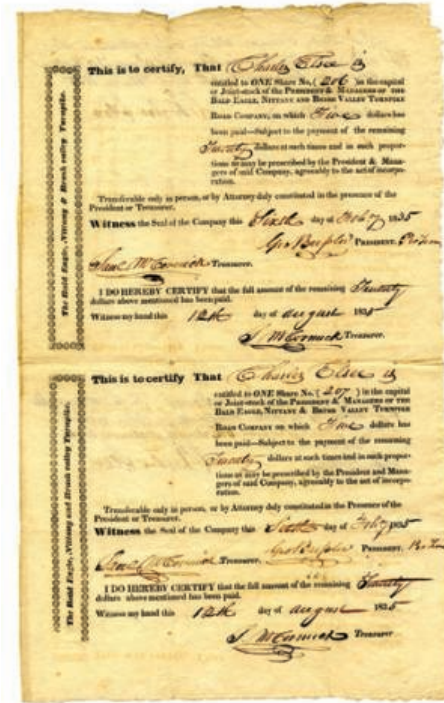 The Bald Eagle, Nittany & Brush valley Turnpike.
This is to certify, That Charles Elsee is
entitled to ONE Share No. (206) in the capital
or Joint-stock of the PRESIDENT & MANAGERS OF THE
BALD EAGLE, NITTANY AND BRUSH VALLEY TURNPIKE
ROAD COMPANY, on which Five dollars has
been paid—Subject to the payment of the remaining
Twenty dollars at such times and in such propor-
tions as may be prescribed by the President & Mana-
gers of said Company, agreeably to the act of incorpo-
ration.
Transferable only in person, or by Attorney duly constituted in the presence of the
President or Treasurer.
Witness the Seal of the Company this Sixth day of Feby 1835
Geo PRESIDENT.
Saml McCormick Treasurer.
I DO HEREBY CERTIFY that the full amount of the remaining Twenty
dollars above mentioned has been paid.
Witness my hand this 12th day of august 1835
S McCormick Treasurer.
The Bald Eagle, Nittany and Brush valley Turnpike.
This is to certify That Charles Elsee is
entitled to ONE Share No. (207) in the capital
or Joint-stock of the PRESIDENT & MANAGERS OF THE
BALD EAGLE, NITTANY & BRUSH VALLEY TURNPIKE
ROAD COMPANY on which Five dollars has
been paid—Subject to the payment of the remaining
Twenty dollars at such times and in such propor-
tions as may be prescribed by the President and Mana-
gers of said Company, agreeably to the act of incorpo-
ration.
Transferable only in person, or by Attorney duly constituted in the Presence of the
President or Treasurer.
Witness the Seal of the Company this Sixth day of Feby 1835
Geo PRESIDENT.
Saml McCormick Treasurer.
I DO HEREBY CERTIFY that the full amount of the remaining Twenty
dollars above mentioned has been paid.
Witness my hand this 12th day of august 1835
S McCormick Treasurer